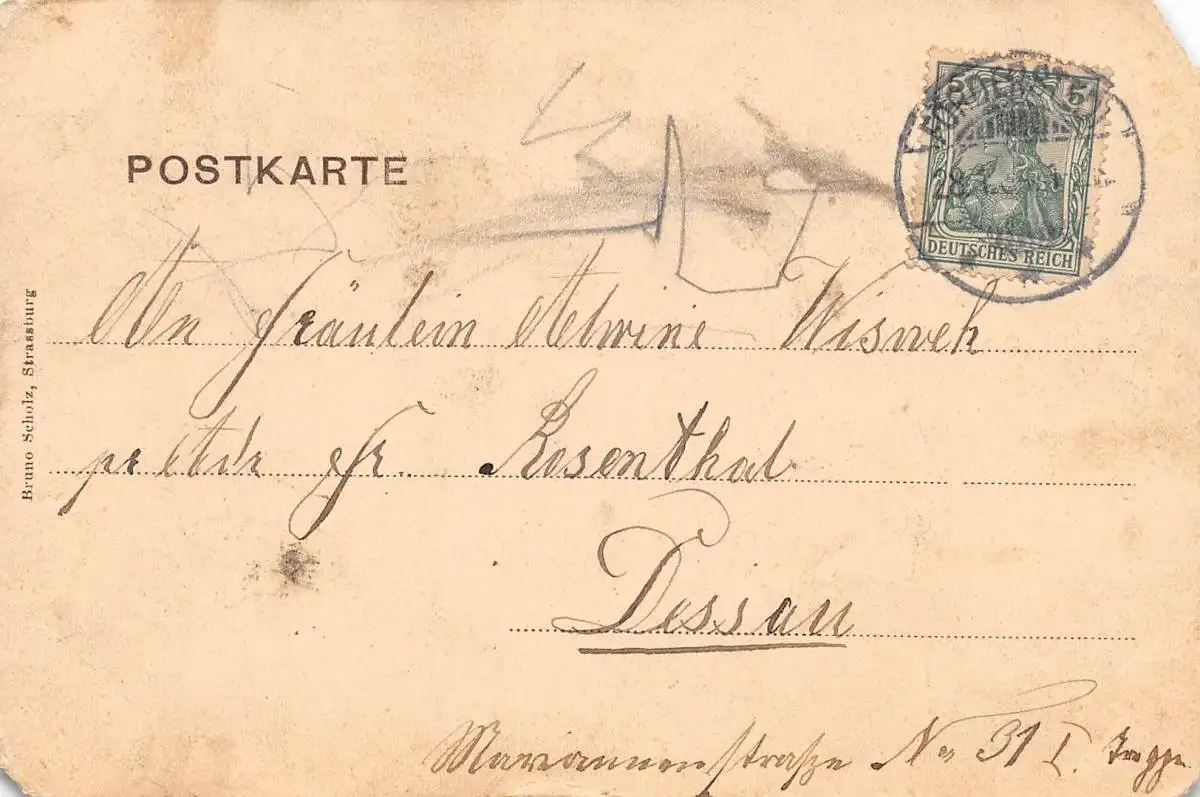 POSTKARTE
5
DEUTSCHES REICH
28.
Bruno Scholz, Strassburg
An Fräulein Alwine Wisweh
pr Adr Fr. Rosenthal
Dessau
Mariannenstraße No 31 I.